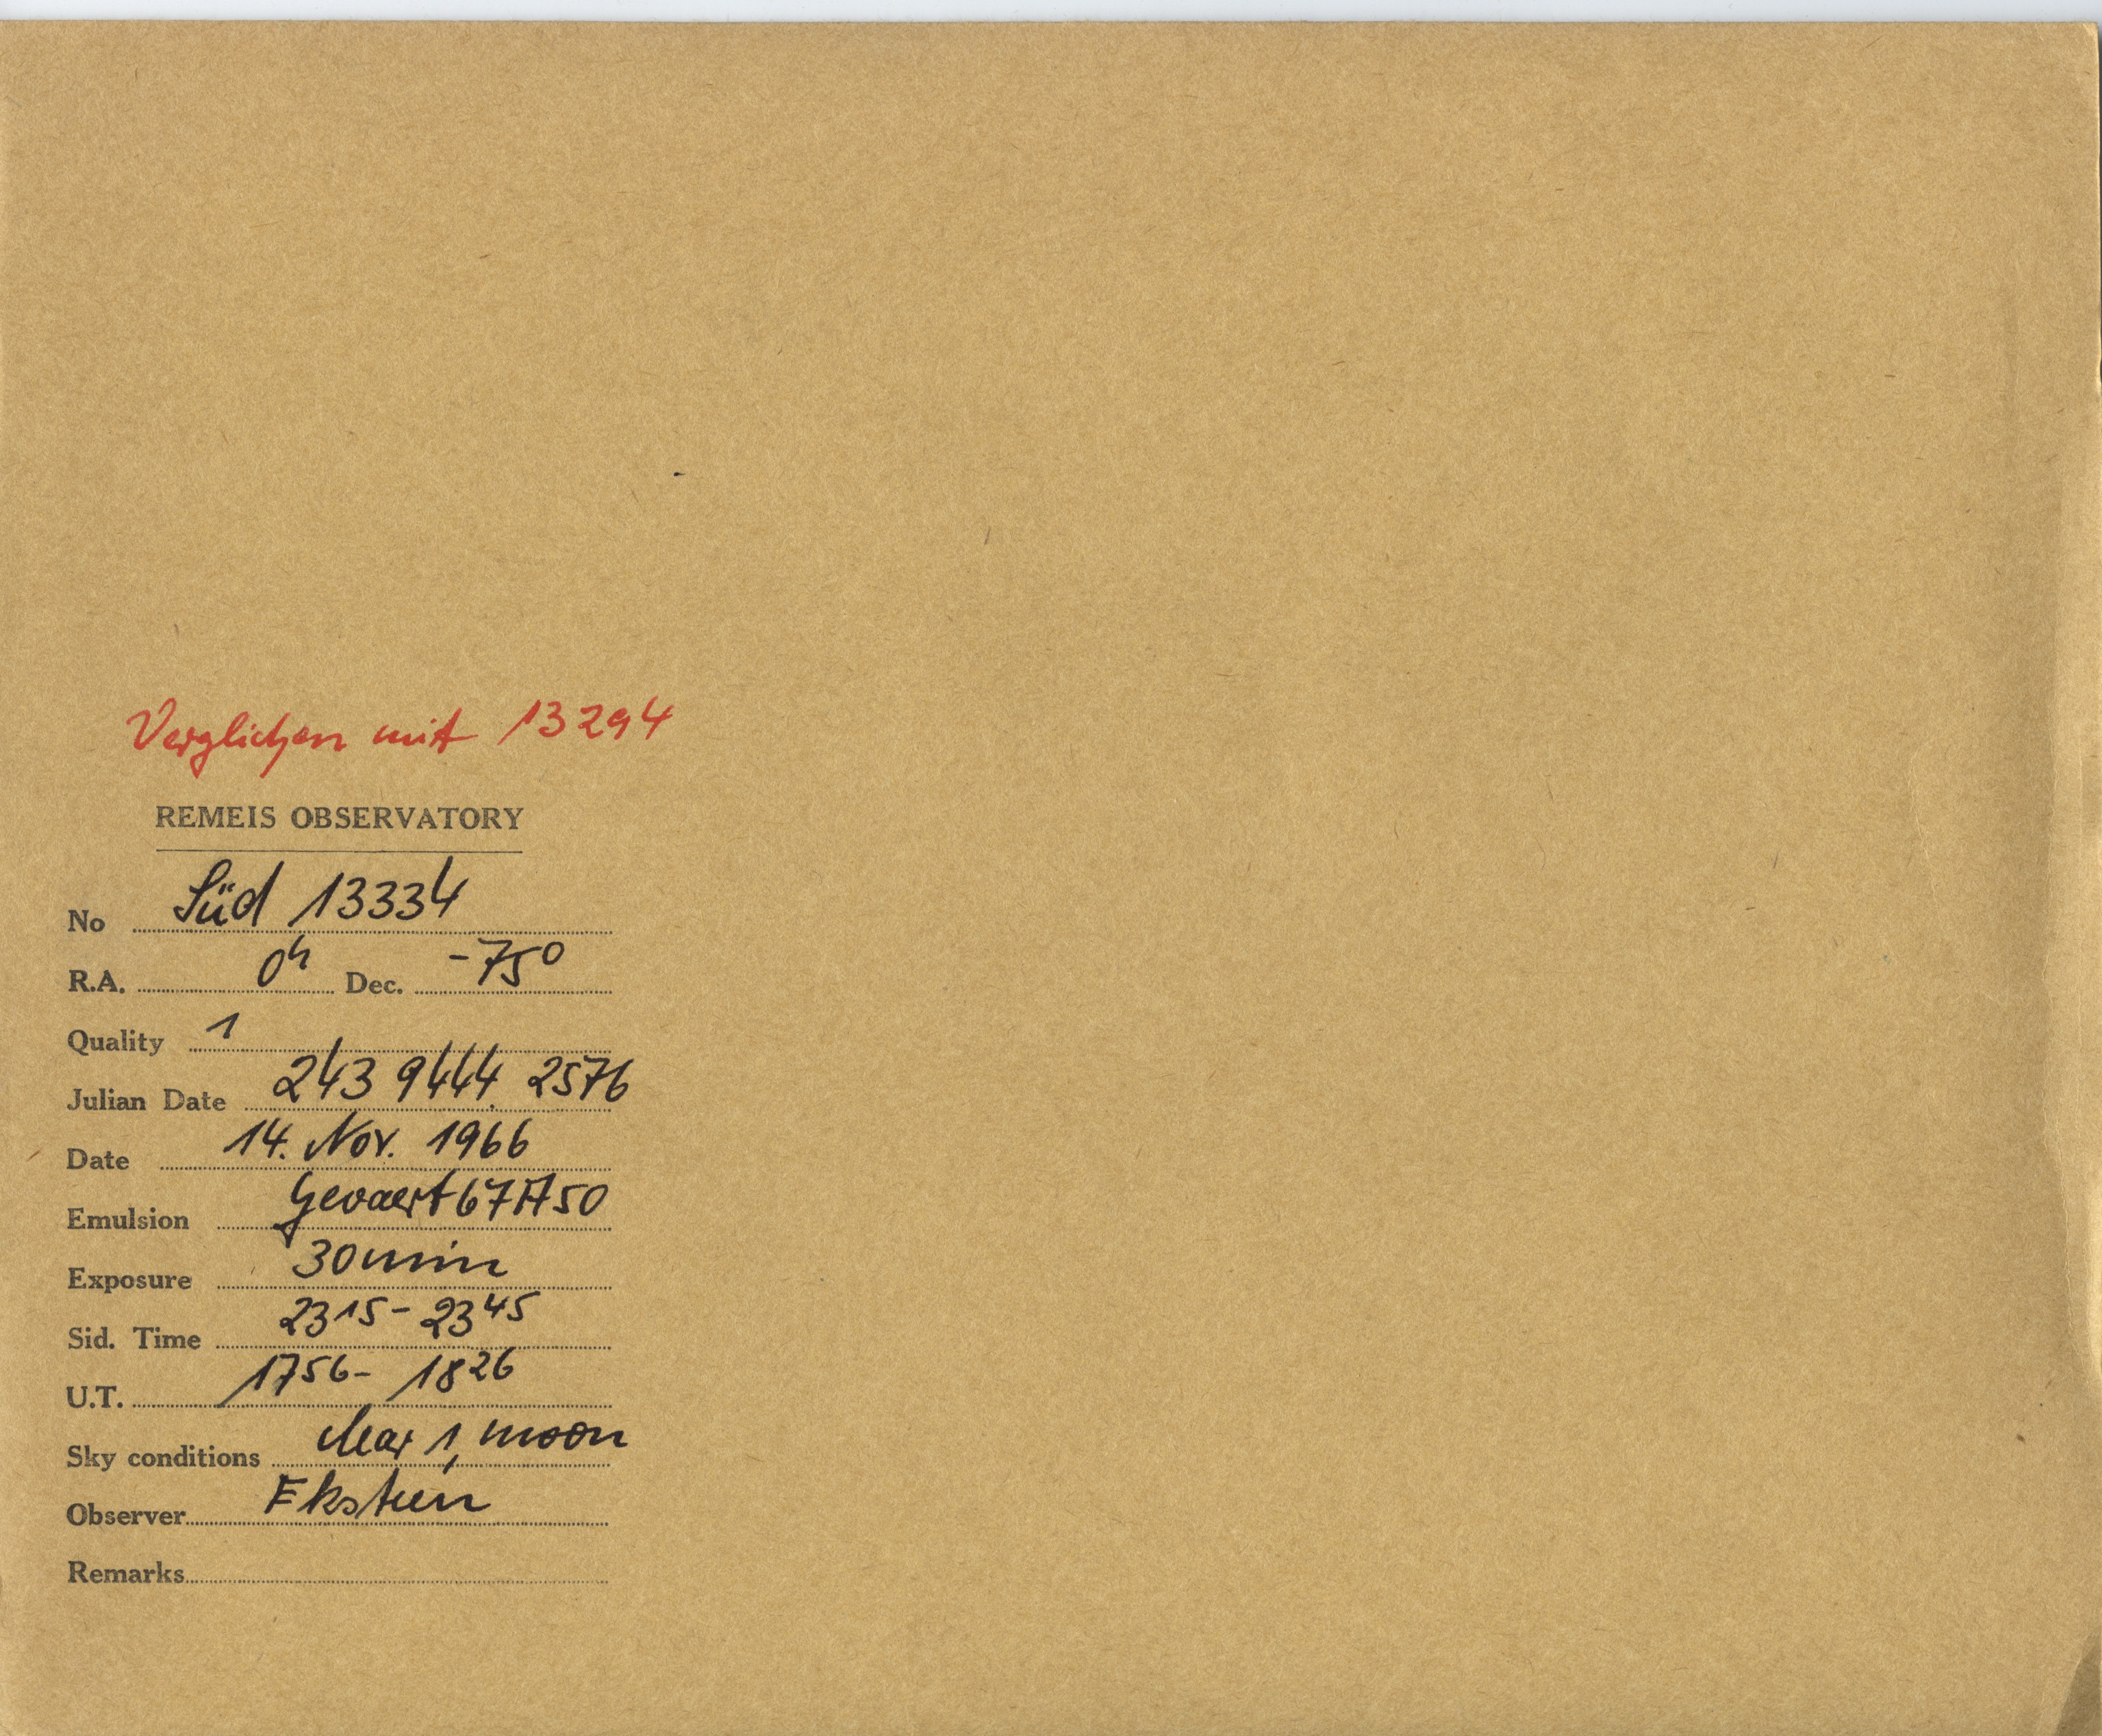 Verglichen mit 13294
REMEIS OBSERVATORY
No Süd 13334
R.A. 0h Dec. -75°
Quality 1
Julian Date 243 9444. 2576
Date 14. Nov. 1966
Emulsion Gevaert 67A50
Exposure 30 min
Sid. Time 23 15 - 23 45
U.T. 17 56 - 18 26
Sky conditions clear 1, moon
Observer Eksteen
Remarks